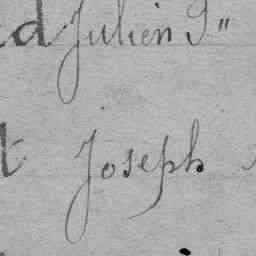 d Julien S"
t Joseph